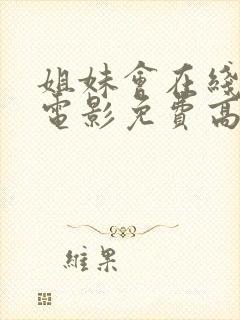 姐妹會在綫
電影免費高
維果